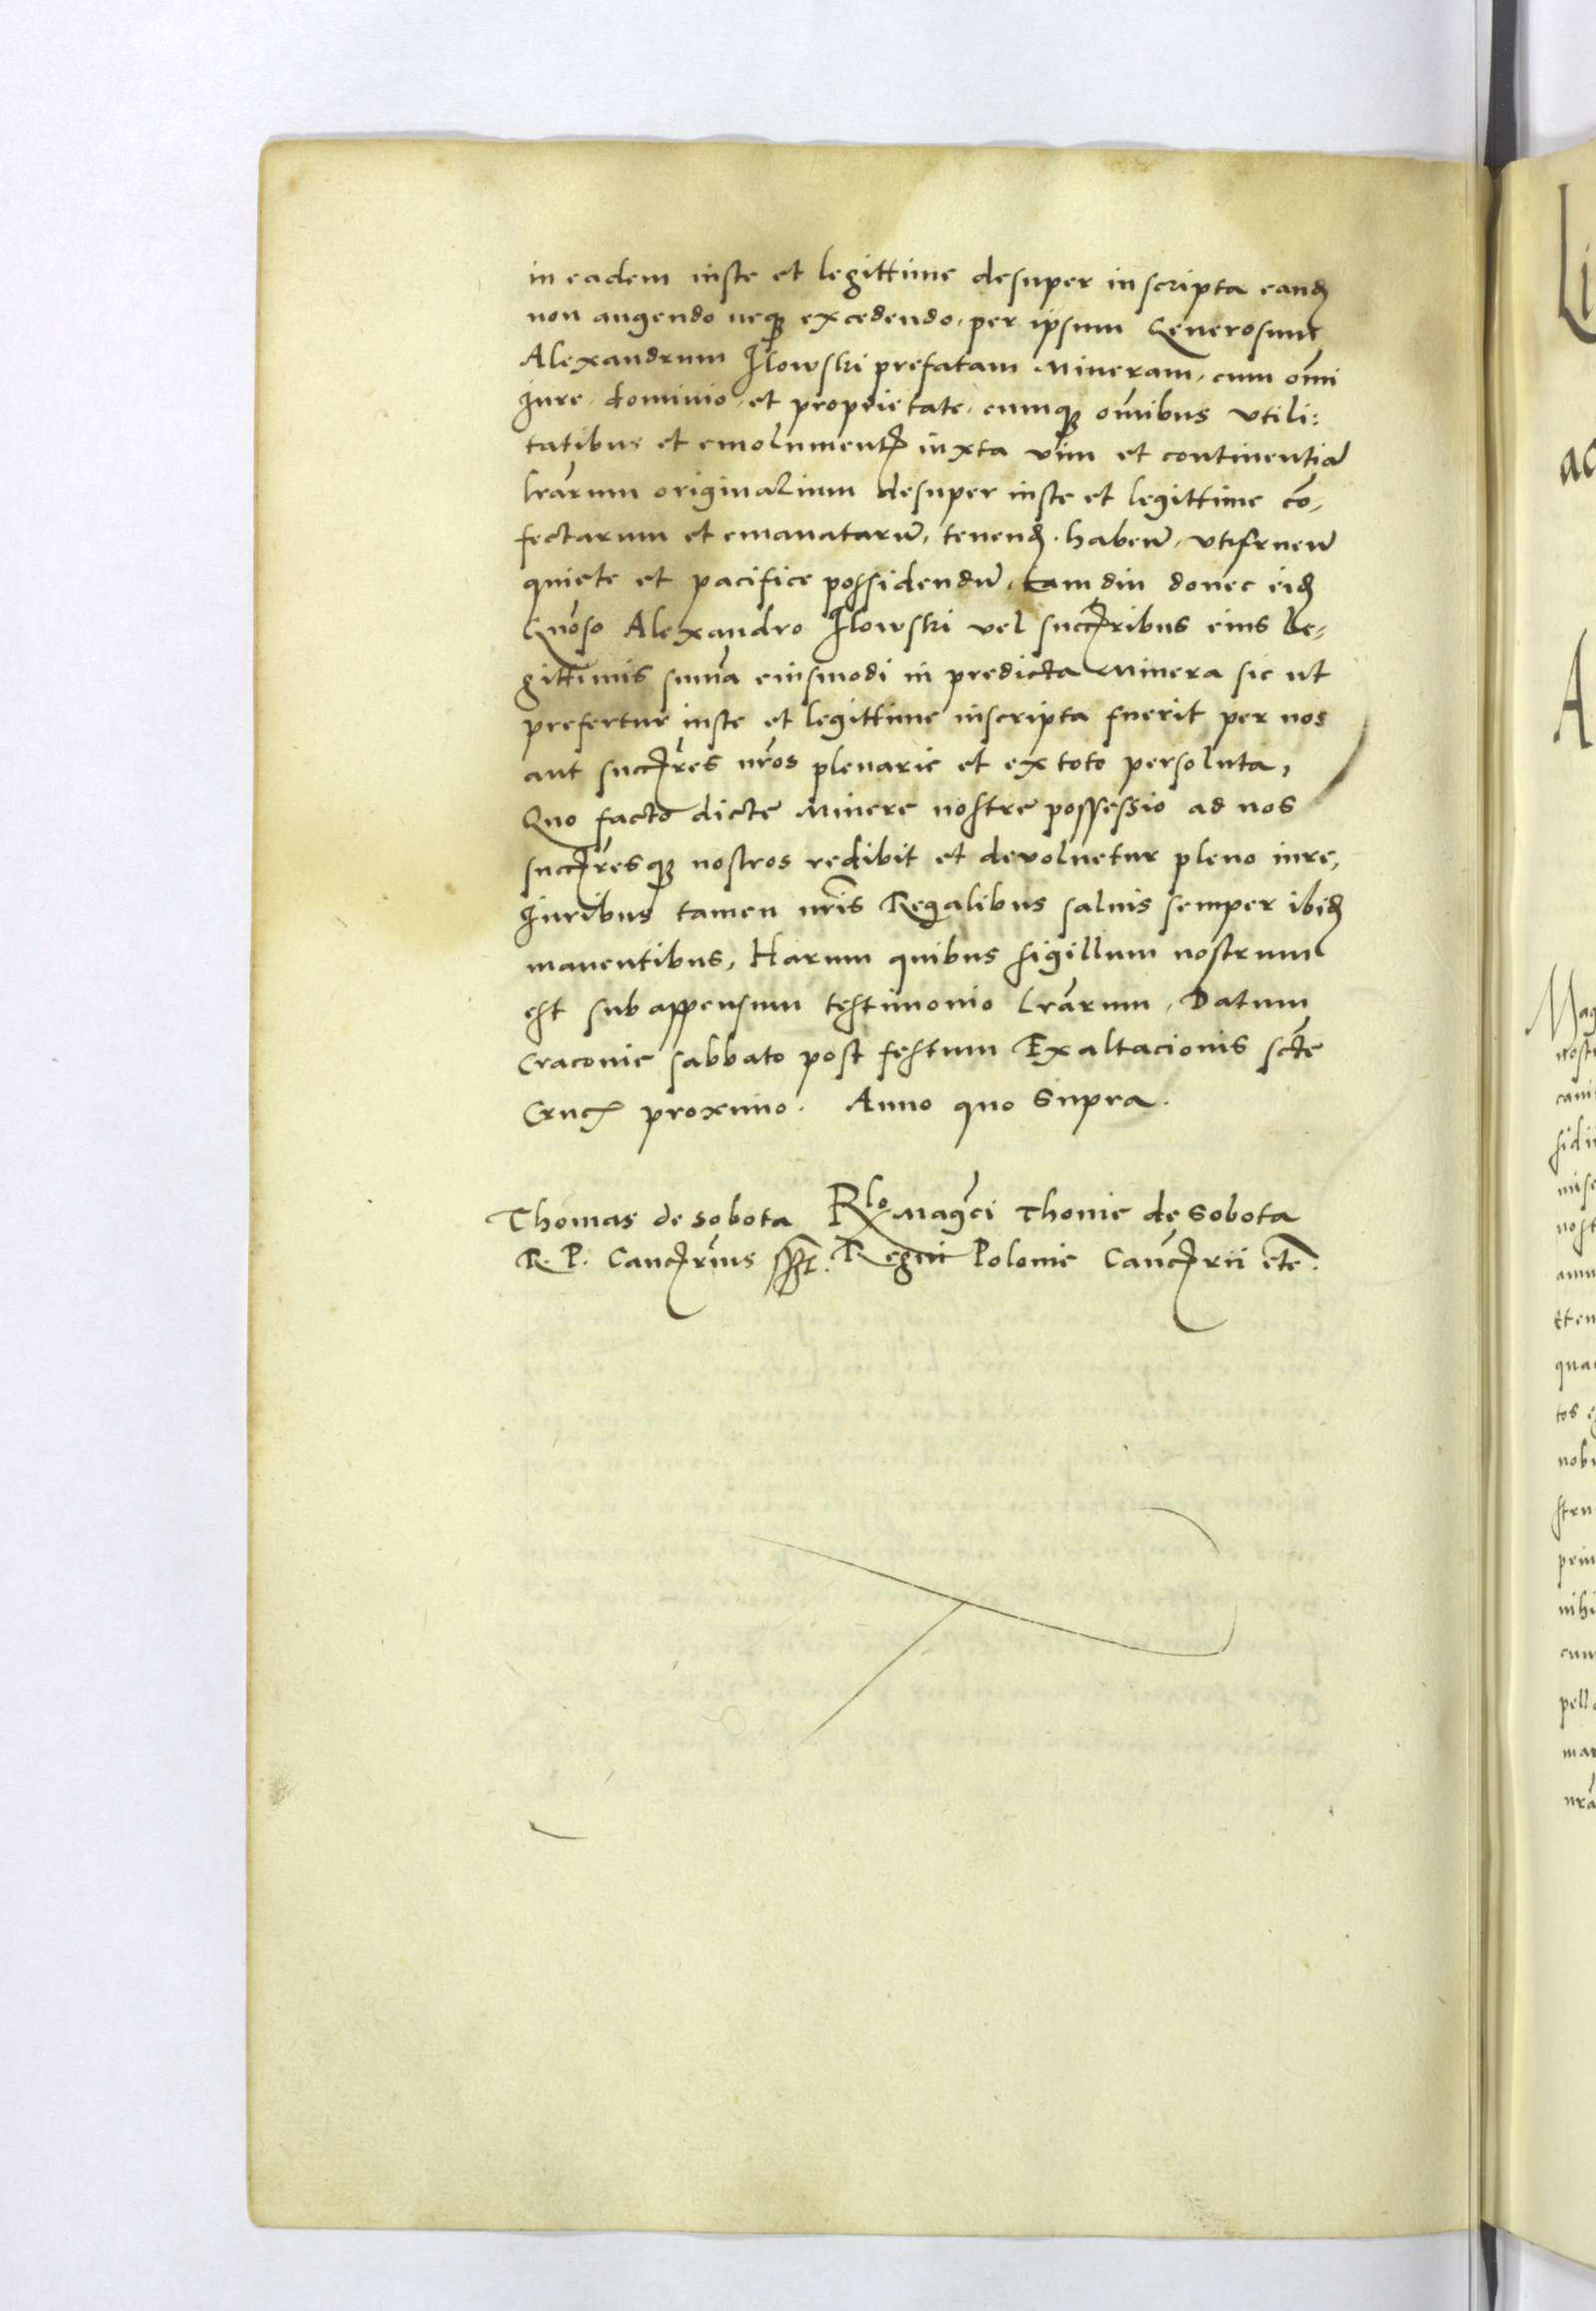 in eadem iuste et legittime desuper inscripta eand
non augendo neq excedendo, per ipsum Generosum
Alexandrum Ilowski prefatam Mineram, cum omi
Iure, dominio, et proprietate, cumq omibus vtili:
tatibus et emolument iuxta vim et continentia
lrarum originalium desuper iuste et legittime co,
fectarum et emanataru, tenend, habeñ, vtifrueñ
quiete et pacifice possidendu, tam diu donec eid
Gnoso Alexandro Ilowski vel succribus eius le,
gittimis suma eiusmodi in predicta Minera sic ut
prefertur iuste et legittime inscripta fuerit, per nos
aut succres nros plenarie et ex toto persoluta,
Quo facto dicte Minere nostre possessio ad nos
succresq nostros redibit et devoluetur pleno iure,
Iuribus tamen nris Regalibus saluis semper ibid
manentibus, Harum quibus sigillum nostrum
est subappensum testimonio lrarum, Datum
Cracovie sabbato post festum Exaltacionis scte
Cruc proximo. Anno quo supra.
Thomas de Sobota Rlo Magci Thome de Sobota
R. P. Cancrius sst. Regni Polonie Cancrii etc.
Li
ac
A
Mag
nost
cam
sidi
mis
nost
anu
et en
qua
tos
nob
stru
prin
nihi
cum
pell
man
nra